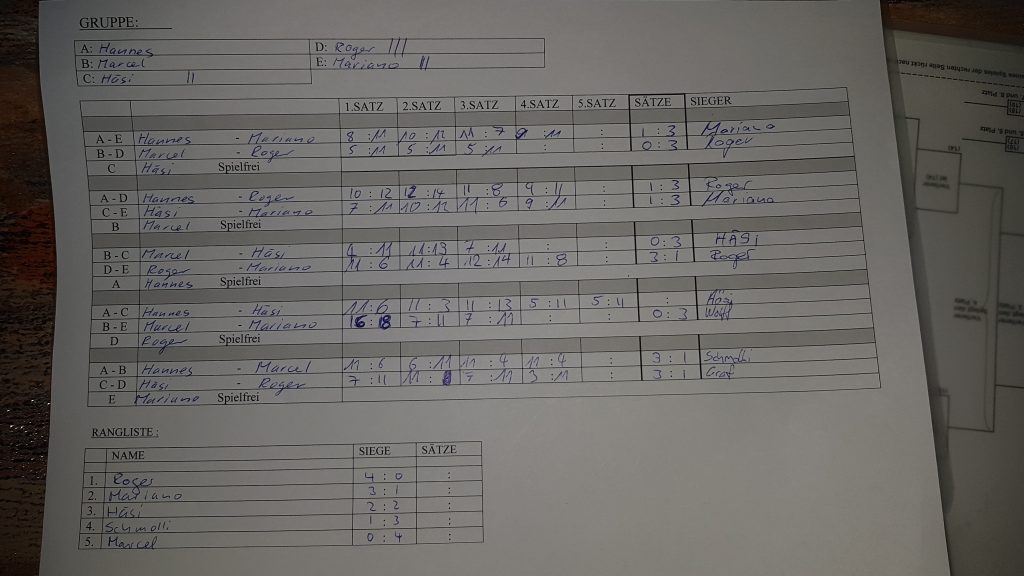 GRUPPE:
A: Hannes D: Roger |||
B: Marcel E: Mariano ||
C: Häsi ||
1.SATZ 2.SATZ 3.SATZ 4.SATZ 5.SATZ SÄTZE SIEGER
A - E Hannes - Mariano 8 : 11 10 : 12 11 : 7 9 : 11 : 1 : 3 Mariano
B - D Marcel - Roger 5 : 11 5 : 11 5 : 11 : : 0 : 3 Roger
C Häsi Spielfrei
A - D Hannes - Roger 10 : 12 12 : 14 11 : 8 9 : 11 : 1 : 3 Roger
C - E Häsi - Mariano 7 : 11 10 : 12 11 : 6 9 : 11 : 1 : 3 Mariano
B Marcel Spielfrei
B - C Marcel - Häsi 4 : 11 11 : 13 7 : 11 : : 0 : 3 HÄSi
D - E Roger - Mariano 11 : 6 11 : 4 12 : 14 11 : 8 : 3 : 1 Roger
A Hannes Spielfrei
A - C Hannes - Häsi 11 : 6 11 : 3 11 : 13 5 : 11 5 : 11 : Häsi
B - E Marcel - Mariano 16 : 18 7 : 11 7 : 11 : : 0 : 3 Wolf
D Roger Spielfrei
A - B Hannes - Marcel 11 : 6 6 : 11 11 : 4 11 : 4 : 3 : 1 Schmolli
C - D Häsi - Roger 7 : 11 11 : 7 : 11 3 : 11 : 3 : 1 Graf
E Mariano Spielfrei
RANGLISTE :
NAME SIEGE SÄTZE
1. Roger 4 : 0 :
2. Mariano 3 : 1 :
3. Häsi 2 : 2 :
4. Schmolli 1 : 3 :
5. Marcel 0 : 4 :